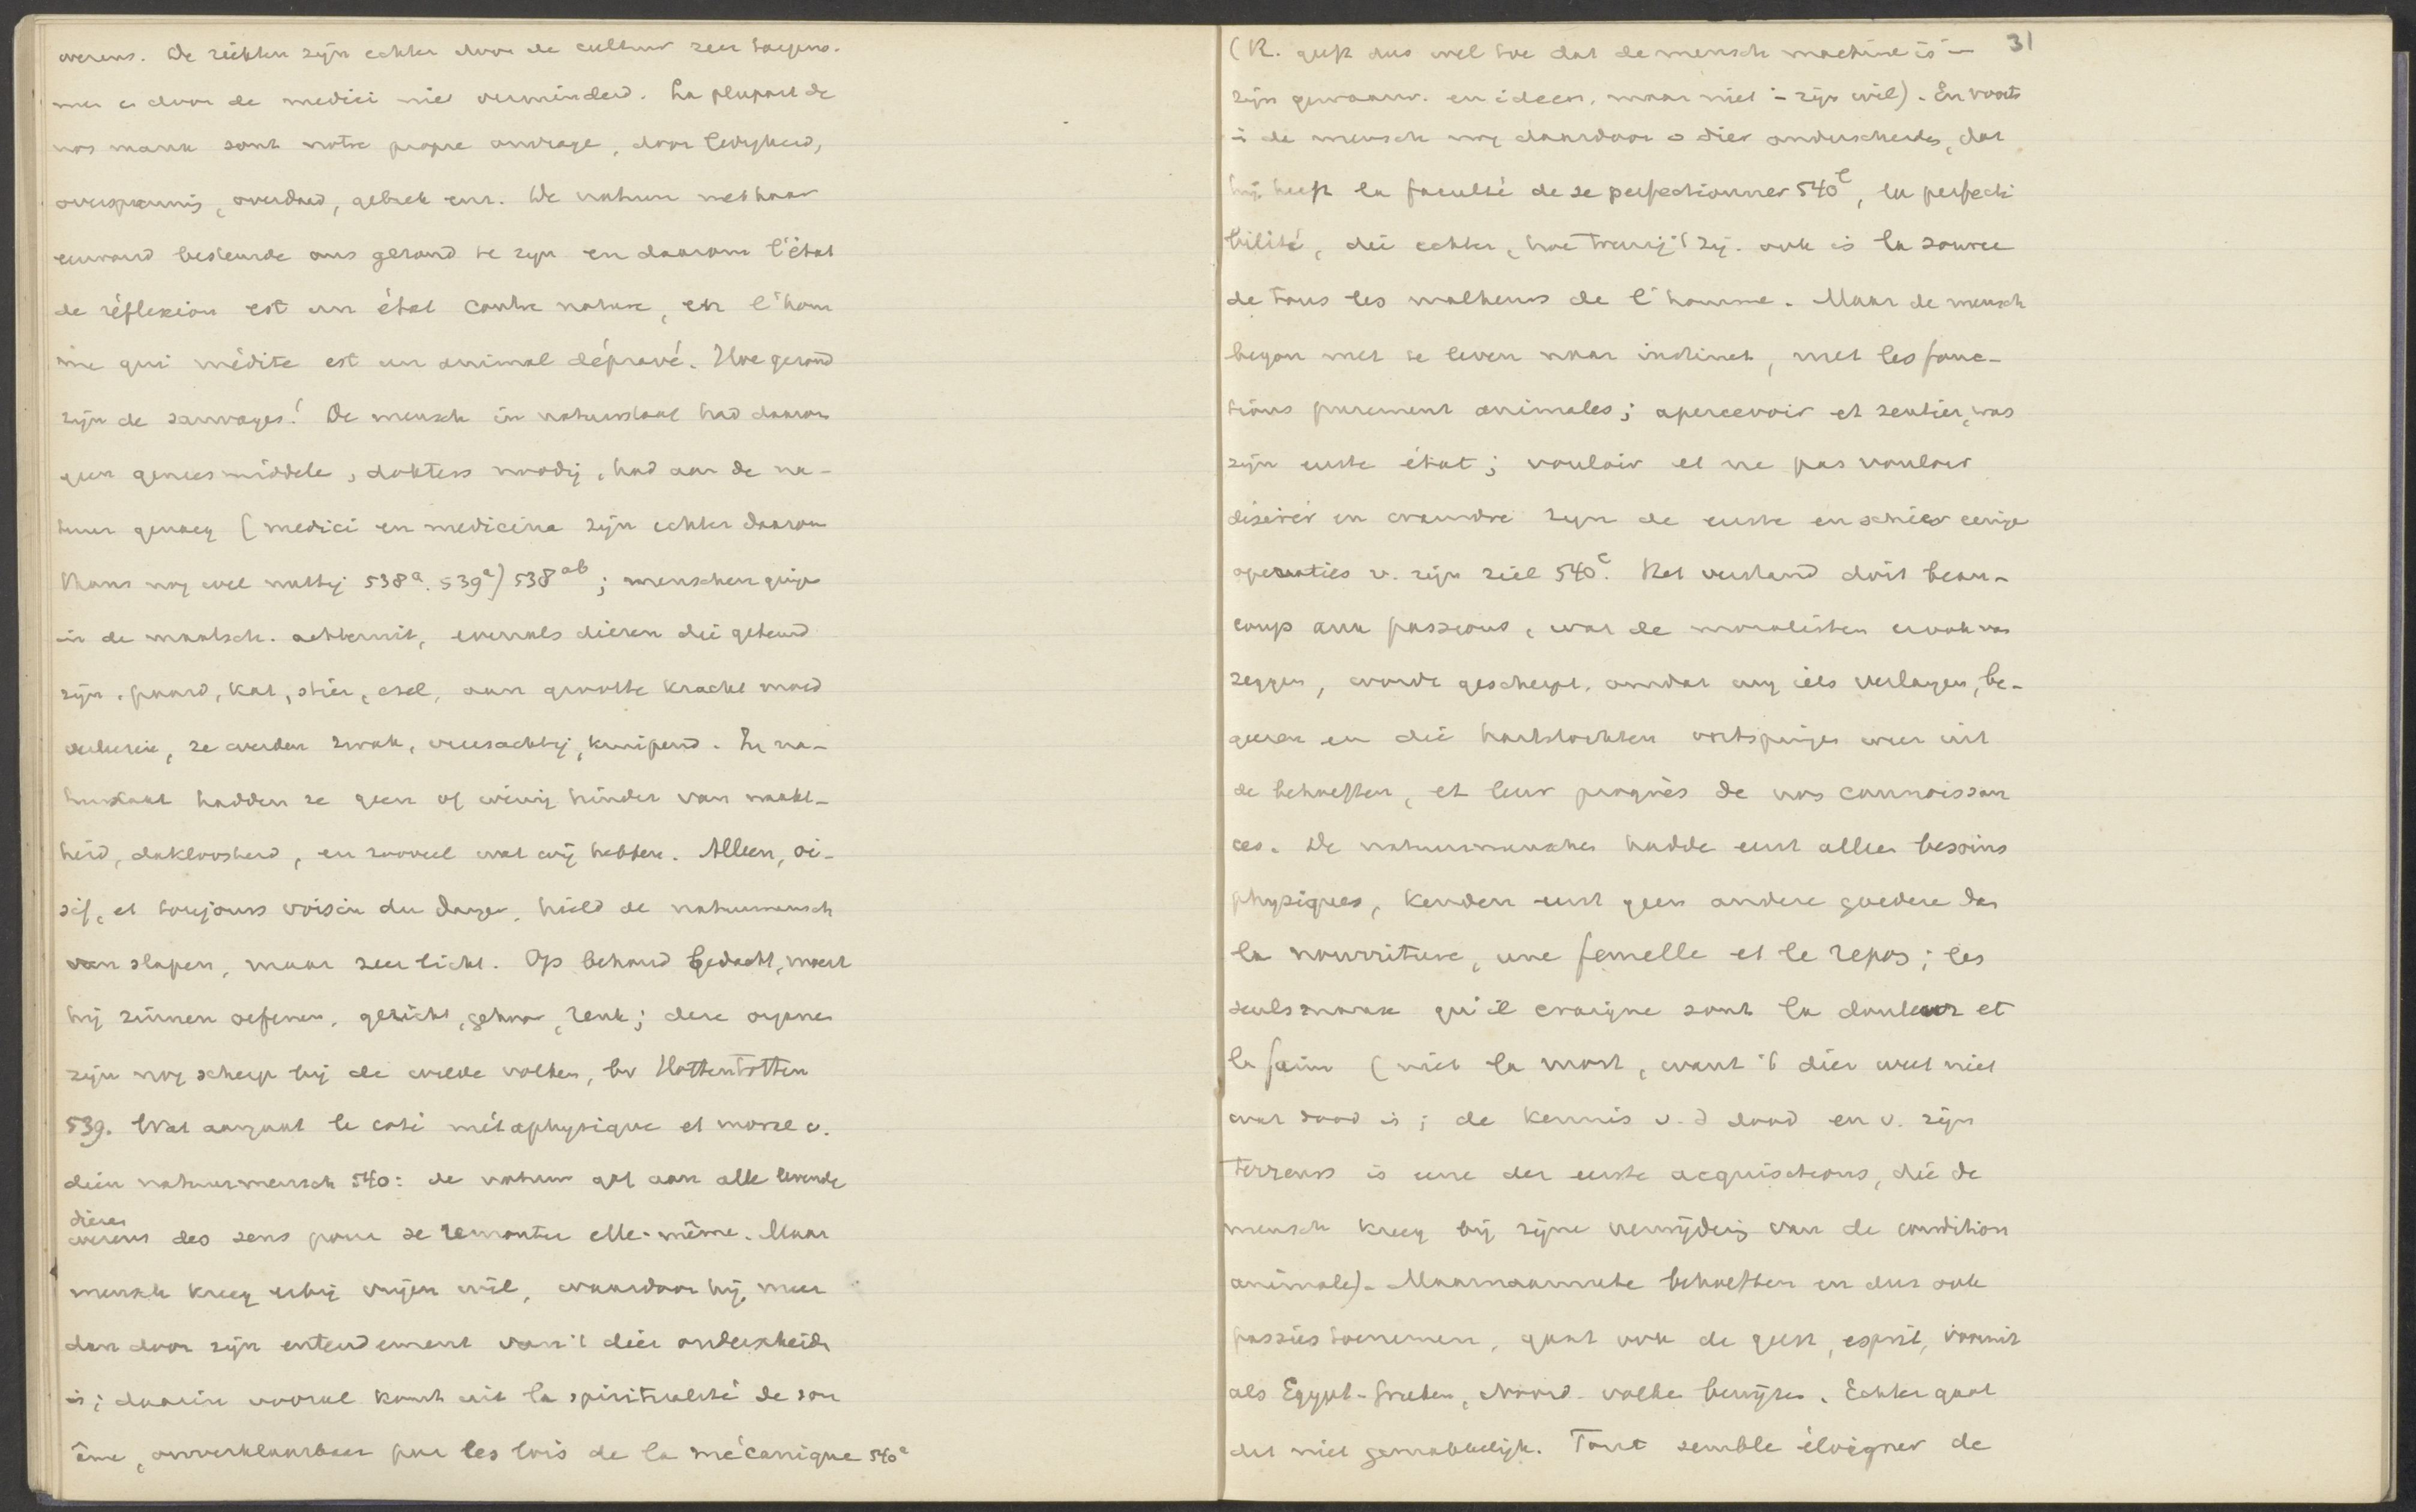 overeens. De ziekten zijn echter door de cultuur zeer toegeno-
men en door de medici niet verminderd. La plupart de
nos maux sont notre propre ouvrage, door ledigheid,
overspannig, overdaad, gebrek enz. De natuur
bestemde ons gezond te zijn en daarom l'état
de réflexion est un état contre nature, en l'hom
me qui médite est un animal dépravé. Hoe gezond
zijn de sauvages! De mensch in natuurstaat had daarom
geen geneesmiddele, dokters noodig, had aan de na-
tuur genoeg (medici en medicina zijn echter daarom
thans nog wel nuttig 538a. 539a) 538ab; menschen gingen
in de maatsch. achteruit, evenals dieren die getemd
zijn, paard, kat, stier, ezel, aan grootte kracht moed
verliezen, ze werden zwak, vreesachtig, kruipend. In na-
tuurstaat hadden ze geen of weinig hinder van naakt-
heid, dakloosheid, en zooveel wat wij hebben. Alleen, oi-
sif, et toujours voisin du danger, hield de natuurmensch
van slapen, maar zeer licht. Op behoud bedacht, moest
hij zinnen oefenen, gezicht, gehoor, reuk; deze organen
zijn nog scherp bij de wilde volken, bv Hottentotten
539. Wat aangaat le coté métaphysique et morale v.
dien natuurmensch 540: de natuur gaf aan alle levende
dieren
wezens des sens pour se remonter elle-même. Maar
mensch kreeg erbij vrijen wil, waardoor hij meer
dan door zijn entendement van 't dier onderscheiden
is; daarin vooral komt uit la spiritualité de son
âme, onverklaarbaar par les lois de la mécanique 540a
31
(R. geeft dus wel toe dat de mensch machine is in
zijn gewaarw. en ideeen, maar niet in zijn wil). En voorts
is de mensch nog daardoor v dier onderscheiden, dat
hij heeft la faculté de se perfectionner 540b, la perfecti
bilité, die echter, hoe treurig 't zij, ook is la source
de tous les malheurs de l'homme. Maar de mensch
begon met te leven naar instinct, met les fonc-
tions purement animales; apercevoir et sentir, was
zijn eerste état; vouloir et ne pas vouloir
désirer en craindre zijn de eerste en schier eenige
operaties v. zijn ziel 540c. Het verstand doit beau-
coup aux passions, wat de moralisten er ook van
zeggen, wordt gescherpt, omdat wij iets verlangen, be-
geeren en die hartstochten ontspringen weer uit
de behoeften, et leur progrès de nos connoissan
ces. De natuurmenschen hadden eerst alleen besoins
physiques, kenden eerst geen andere goederen dan
la nourriture, une femelle et le repos; les
seuls maux qu'il craigne sont la douleur et
la faim (niet la mort, want 't dier weet niet
wat dood is; de kennis v. d dood en v. zijn
terreurs is eene der eerste acquisitions, die de
mensch kreeg bij zijne verwijdering van de condition
animale). Maarnaarmate behoeften en dus ook
passies toenemen, gaat ook de geest, esprit, vooruit
als Egypt. Grieken, Noord. volken bewijzen. Echter gaat
dat niet gemakkelijk. Tout semble éloigner de